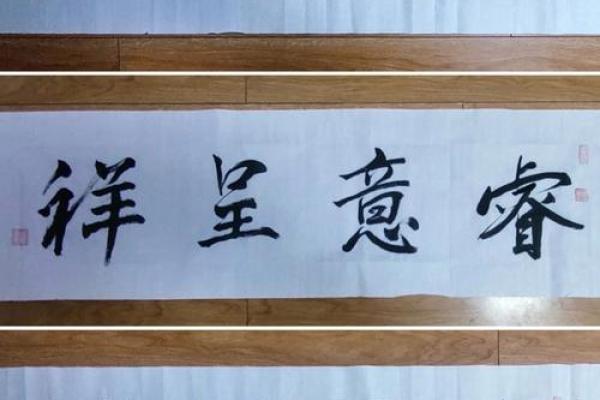 睿意呈祥